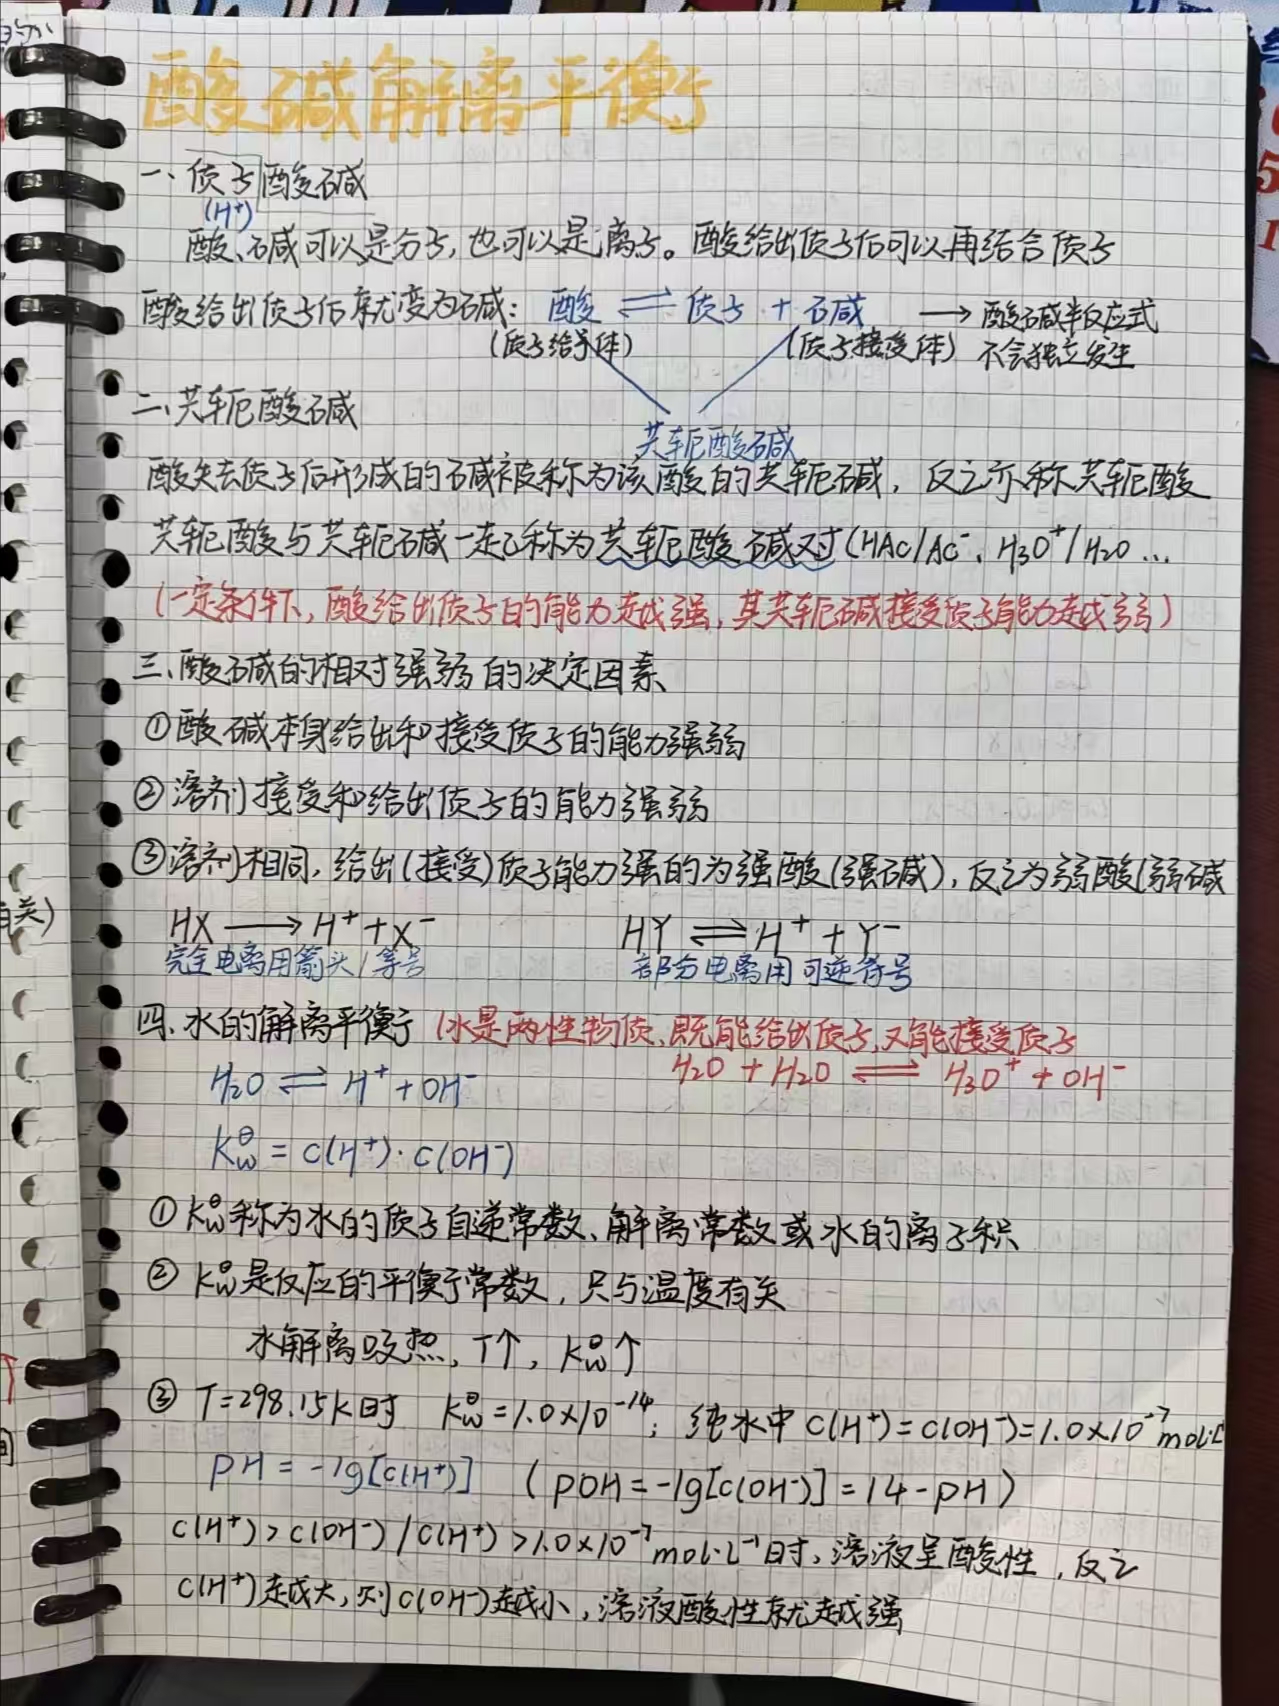 酸碱解离平衡
一、质子酸碱
(H⁺)
酸、碱可以是分子,也可以是离子。酸给出质子后可以再结合质子
酸给出质子后就变为碱: 酸 ⇌ 质子 + 碱 → 酸碱半反应式
(质子给予体) (质子接受体) 不会独立发生
二、共轭酸碱
共轭酸碱
酸失去质子后形成的碱被称为该酸的共轭碱, 反之亦称共轭酸
共轭酸与共轭碱一起称为共轭酸碱对(HAc/Ac⁻、H₃O⁺/H₂O...
(一定条件下, 酸给出质子的能力越强, 其共轭碱接受质子能力越弱)
三、酸碱的相对强弱的决定因素
①酸碱本身给出和接受质子的能力强弱
②溶剂接受和给出质子的能力强弱
③溶剂相同, 给出(接受)质子能力强的为强酸(强碱), 反之为弱酸(弱碱
HX ⟶ H⁺+X⁻ HY ⇌ H⁺ + Y⁻
完全电离用箭头/等号 部分电离用可逆符号
四、水的解离平衡 (水是两性物质、既能给出质子,又能接受质子
H₂O ⇌ H⁺+OH⁻ H₂O + H₂O ⇌ H₃O⁺ + OH⁻
Kw^θ = c(H⁺)·c(OH⁻)
① Kw^θ称为水的质子自递常数、解离常数或水的离子积
② Kw^θ是反应的平衡常数, 只与温度有关
水解离吸热, T↑, Kw^θ↑
③ T=298.15K时 Kw^θ=1.0×10⁻¹⁴; 纯水中 c(H⁺)=c(OH⁻)=1.0×10⁻⁷mol·L
pH = -lg[c(H⁺)] (pOH=-lg[c(OH⁻)]=14-pH)
c(H⁺)>c(OH⁻)/c(H⁺)>1.0×10⁻⁷mol·L⁻¹时, 溶液呈酸性, 反之
c(H⁺)越大, 则c(OH⁻)越小, 溶液酸性就越强